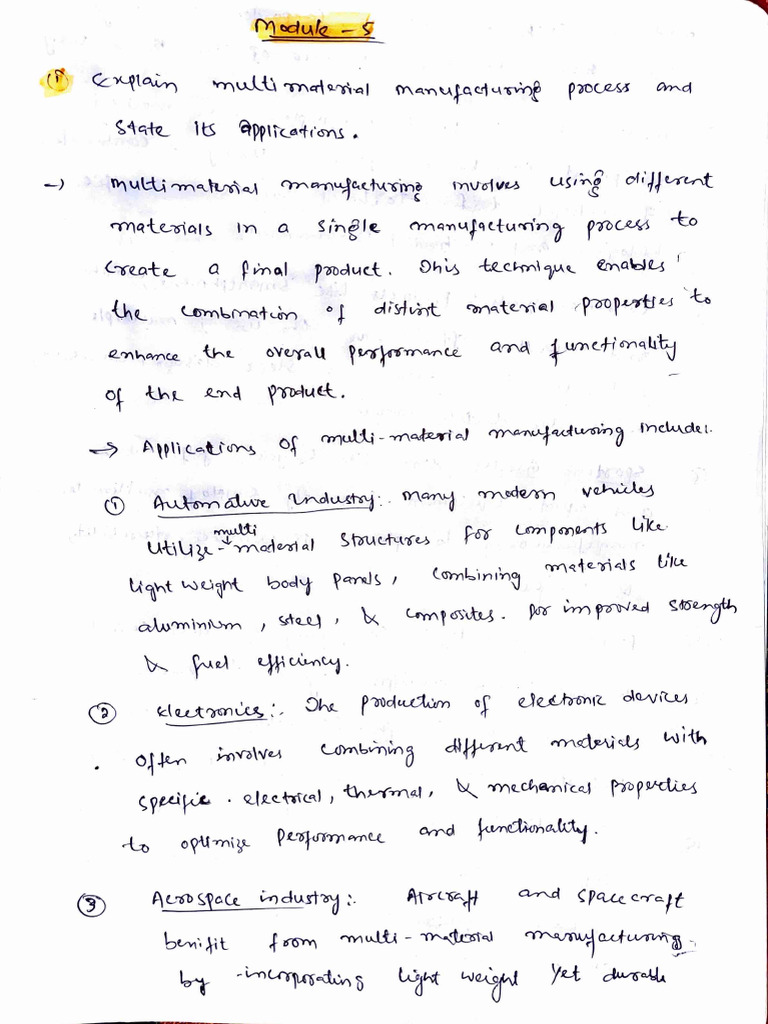 Module - 5
(1) Explain multimaterial manufacturing process and
state its applications.
-> Multimaterial manufacturing involves using different
materials in a single manufacturing process to
create a final product. This technique enables
the combination of distinct material properties to
enhance the overall performance and functionality
of the end product.
-> Applications of multi-material manufacturing include:
① Automative industry:. Many modern vehicles
utilize - multi material structures for components like
light weight body panels, combining materials like
aluminium, steel, & composites. for improved strength
& fuel efficiency.
② Electronics:. The production of electronic devices
often involves combining different materials with
specific . electrical, thermal, & mechanical properties
to optimize performance and functionality.
③ Aerospace industry:. Aircraft and spacecraft
benifit from multi-material manufacturing
by -incorporating light weight yet durable